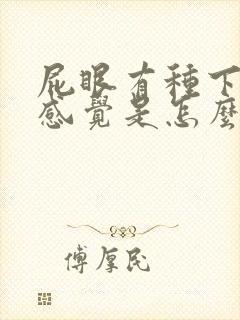 屁眼有種下
感覺是怎麼
傅厚民